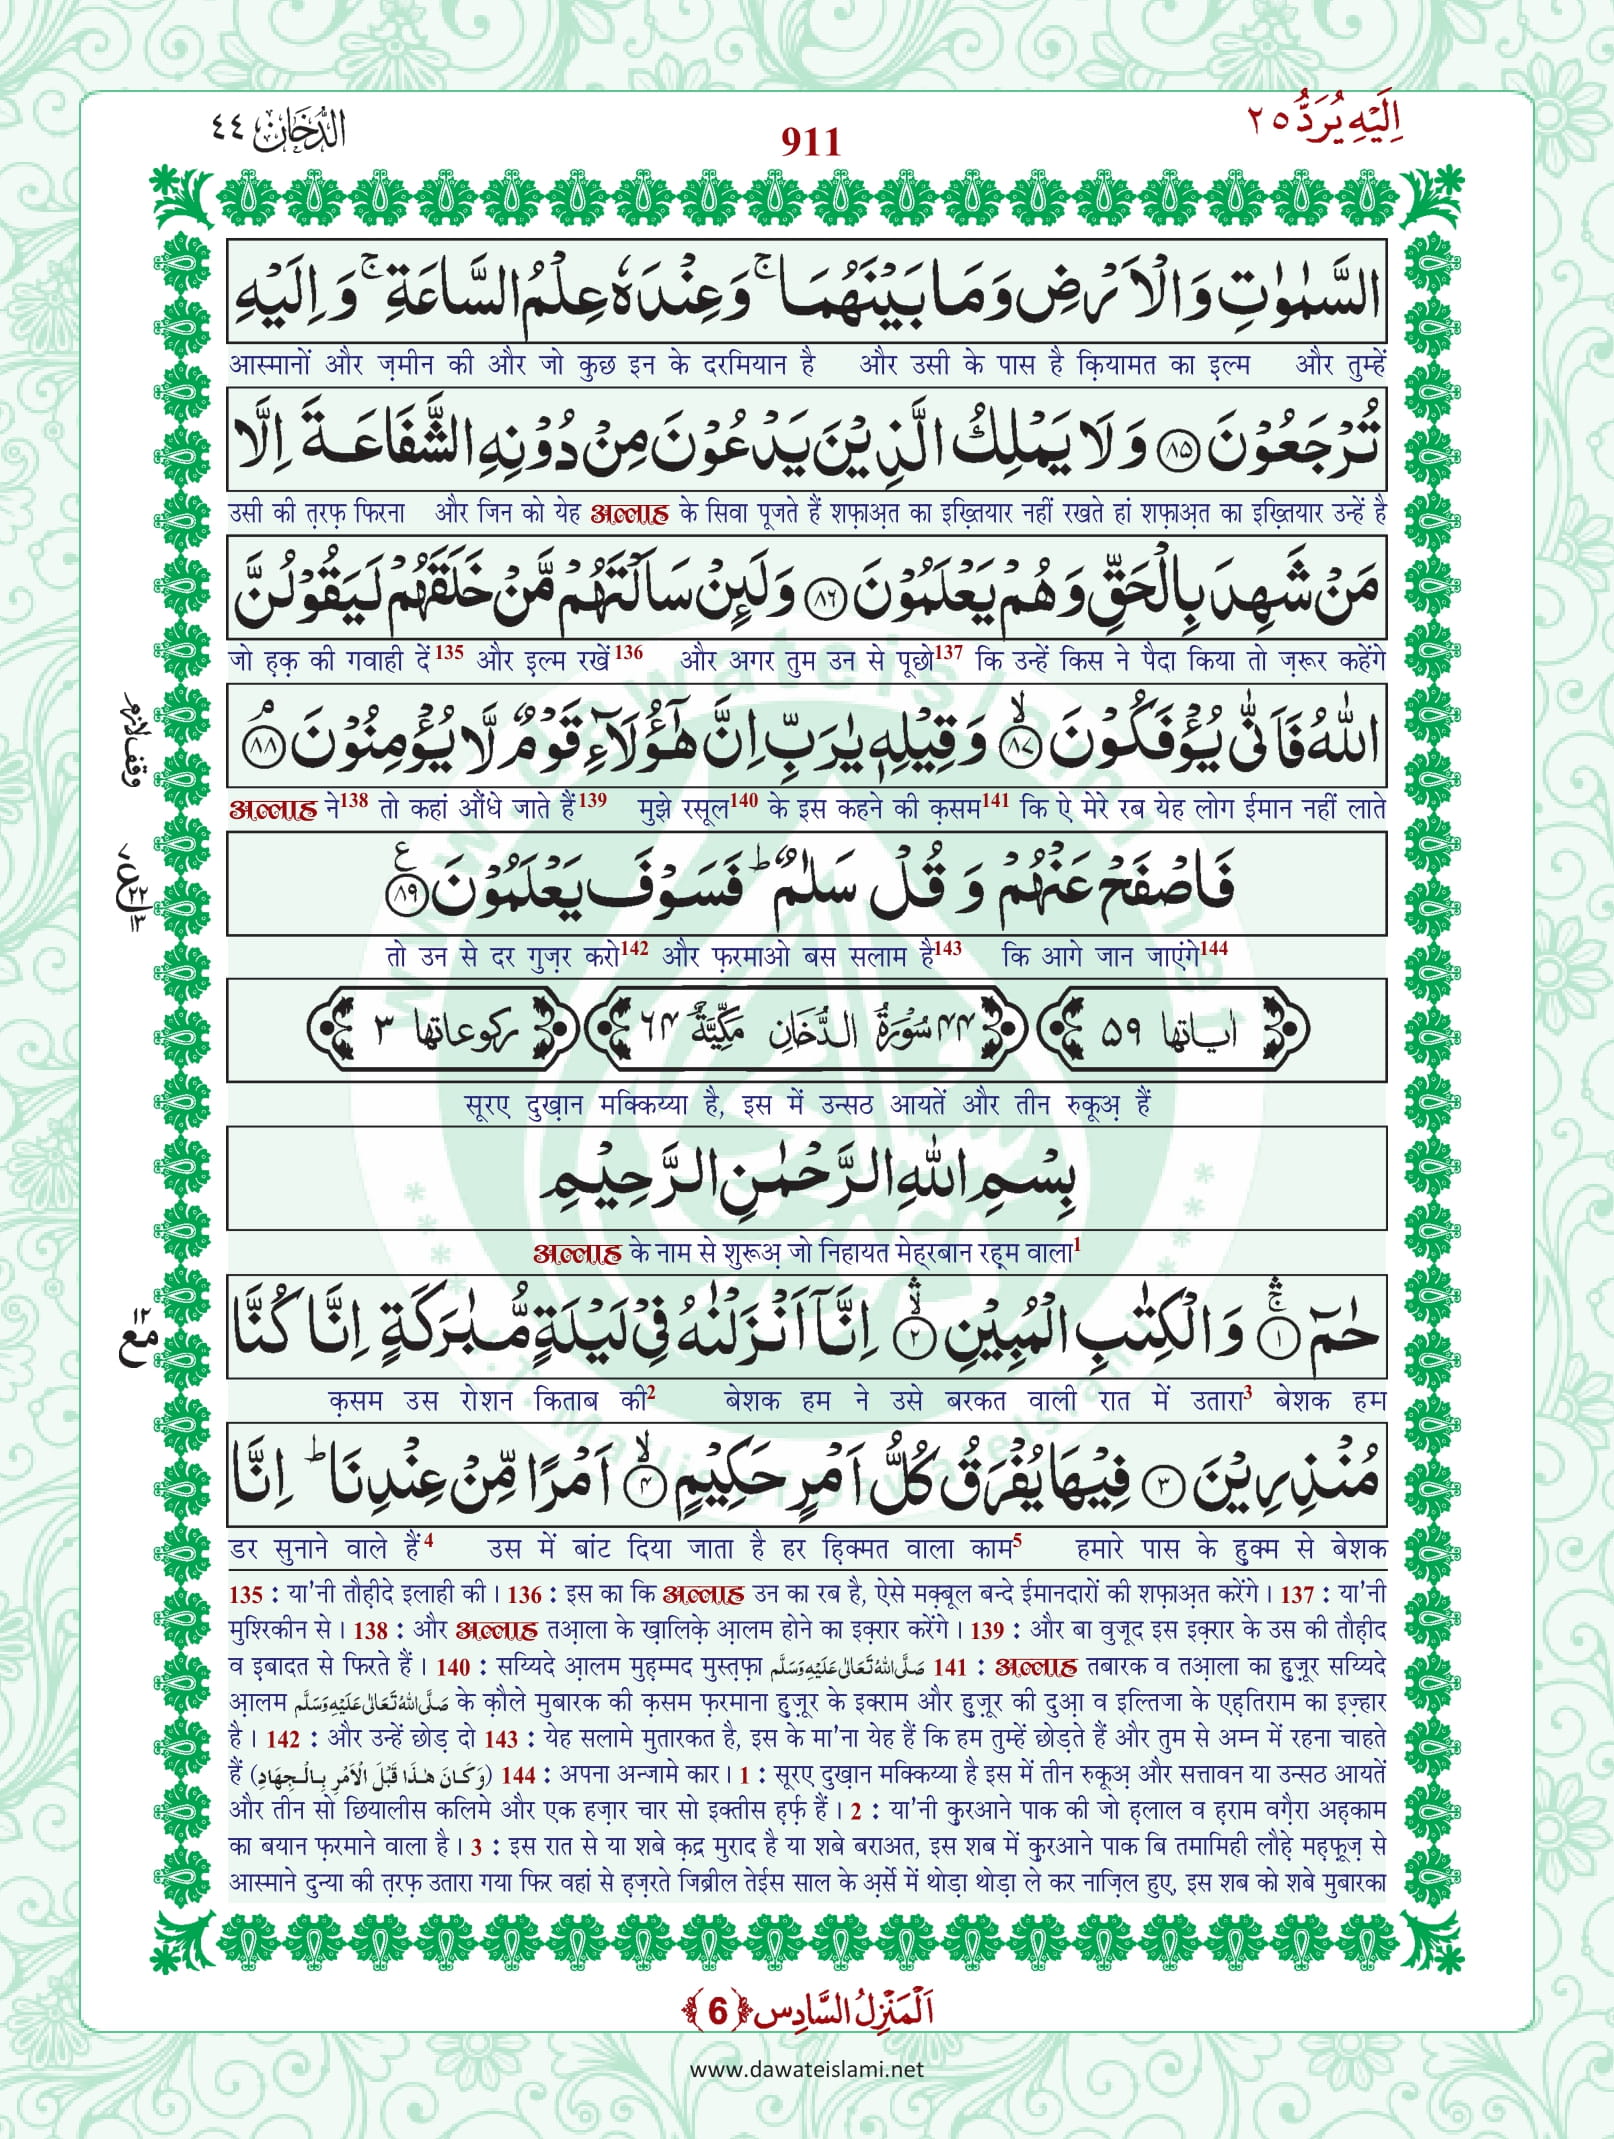 اِلَیْهِ یُرَدُّ ٢٥
911
الدُّخَان ٤٤
السَّمٰوٰتِ وَالْاَرْضِ وَمَا بَیْنَهُمَا ۚ وَعِنْدَهٗ عِلْمُ السَّاعَةِ ۚ وَاِلَیْهِ
आस्मानों और ज़मीन की और जो कुछ इन के दरमियान है और उसी के पास है क़ियामत का इल्म और तुम्हें
تُرْجَعُوْنَ ﴿٨٥﴾ وَلَا یَمْلِكُ الَّذِیْنَ یَدْعُوْنَ مِنْ دُوْنِهِ الشَّفَاعَةَ اِلَّا
उसी की त़रफ़ फिरना और जिन को येह अल्लाह के सिवा पूजते हैं शफ़ाअ़त का इख़्तियार नहीं रखते हां शफ़ाअ़त का इख़्तियार उन्हें है
مَنْ شَهِدَ بِالْحَقِّ وَهُمْ یَعْلَمُوْنَ ﴿٨٦﴾ وَلَىِٕنْ سَاَلْتَهُمْ مَّنْ خَلَقَهُمْ لَیَقُوْلُنَّ
जो ह़क़ की गवाही दें135 और इल्म रखें136 और अगर तुम उन से पूछो137 कि उन्हें किस ने पैदा किया तो ज़रूर कहेंगे
اللّٰهُ فَاَنّٰى یُؤْفَكُوْنَ ﴿٨٧﴾ۙ وَقِیْلِهٖ یٰرَبِّ اِنَّ هٰۤؤُلَآءِ قَوْمٌ لَّا یُؤْمِنُوْنَ ﴿٨٨﴾ۘ
وقف لازم
अल्लाह ने138 तो कहां औंधे जाते हैं139 मुझे रसूल140 के इस कहने की क़सम141 कि ऐ मेरे रब येह लोग ईमान नहीं लाते
فَاصْفَحْ عَنْهُمْ وَقُلْ سَلٰمٌ ؕ فَسَوْفَ یَعْلَمُوْنَ ﴿٨٩﴾ ع
ع ٢٢ ١٣
तो उन से दर गुज़र करो142 और फ़रमाओ बस सलाम है143 कि आगे जान जाएंगे144
اٰیاتها ٥٩ ٤٤ سُوْرَةُ الدُّخَانِ مَكِّیَّةٌ ٦٤ ركوعاتها ٣
सूरए दुख़ान मक्किय्या है, इस में उन्सठ आयतें और तीन रुकूअ़ हैं
بِسْمِ اللّٰهِ الرَّحْمٰنِ الرَّحِیْمِ
अल्लाह के नाम से शुरूअ़ जो निहायत मेह्‌रबान रह़्म वाला1
حٰمٓ ﴿١﴾ وَالْكِتٰبِ الْمُبِیْنِ ﴿٢﴾ اِنَّاۤ اَنْزَلْنٰهُ فِیْ لَیْلَةٍ مُّبٰرَكَةٍ اِنَّا كُنَّا
مع ١٢
क़सम उस रोशन किताब की2 बेशक हम ने उसे बरकत वाली रात में उतारा3 बेशक हम
مُنْذِرِیْنَ ﴿٣﴾ فِیْهَا یُفْرَقُ كُلُّ اَمْرٍ حَكِیْمٍ ﴿٤﴾ۙ اَمْرًا مِّنْ عِنْدِنَا ؕ اِنَّا
डर सुनाने वाले हैं4 उस में बांट दिया जाता है हर ह़िक्मत वाला काम5 हमारे पास के ह़ुक्म से बेशक
135 : या'नी तौह़ीदे इलाही की। 136 : इस का कि अल्लाह उन का रब है, ऐसे मक़्बूल बन्दे ईमानदारों की शफ़ाअ़त करेंगे। 137 : या'नी
मुश्रिकीन से। 138 : और अल्लाह तआ़ला के ख़ालिक़े आ़लम होने का इक़्रार करेंगे। 139 : और बा वुजूद इस इक़्रार के उस की तौह़ीद
व इ़बादत से फिरते हैं। 140 : सय्यिदे आ़लम मुह़म्मद मुस्त़फ़ा صَلَّى اللّٰهُ تَعَالٰى عَلَیْهِ وَسَلَّم 141 : अल्लाह तबारक व तआ़ला का हुज़ूर सय्यिदे
आ़लम صَلَّى اللّٰهُ تَعَالٰى عَلَیْهِ وَسَلَّم के क़ौले मुबारक की क़सम फ़रमाना हुज़ूर के इक्राम और हुज़ूर की दुआ़ व इल्तिजा के एह़तिराम का इज़्हार
है। 142 : और उन्हें छोड़ दो 143 : येह सलामे मुतारकत है, इस के मा'ना येह हैं कि हम तुम्हें छोड़ते हैं और तुम से अम्न में रहना चाहते
हैं (وَكَانَ هٰذَا قَبْلَ الْاَمْرِ بِالْجِهَادِ) 144 : अपना अन्जामे कार। 1 : सूरए दुख़ान मक्किय्या है इस में तीन रुकूअ़ और सत्तावन या उन्सठ आयतें
और तीन सो छियालीस कलिमे और एक हज़ार चार सो इक्तीस ह़र्फ़ हैं। 2 : या'नी क़ुरआने पाक की जो ह़लाल व ह़राम वग़ैरा अह़काम
का बयान फ़रमाने वाला है। 3 : इस रात से या शबे क़द्र मुराद है या शबे बराअत, इस शब में क़ुरआने पाक बि तमामिही लौह़े मह़फ़ूज़ से
आस्माने दुन्या की त़रफ़ उतारा गया फिर वहां से ह़ज़रते जिब्रील तेईस साल के अ़र्से में थोड़ा थोड़ा ले कर नाज़िल हुए, इस शब को शबे मुबारका
اَلْمَنْزِلُ السَّادِس ﴿6﴾
www.dawateislami.net